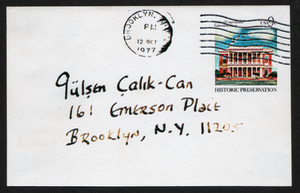 BROOKLYN, N.Y.
PM
12 OCT
1977
USA 9
HISTORIC PRESERVATION
Gülşen Çalık-Can
161 Emerson Place
Brooklyn, N.Y. 11205